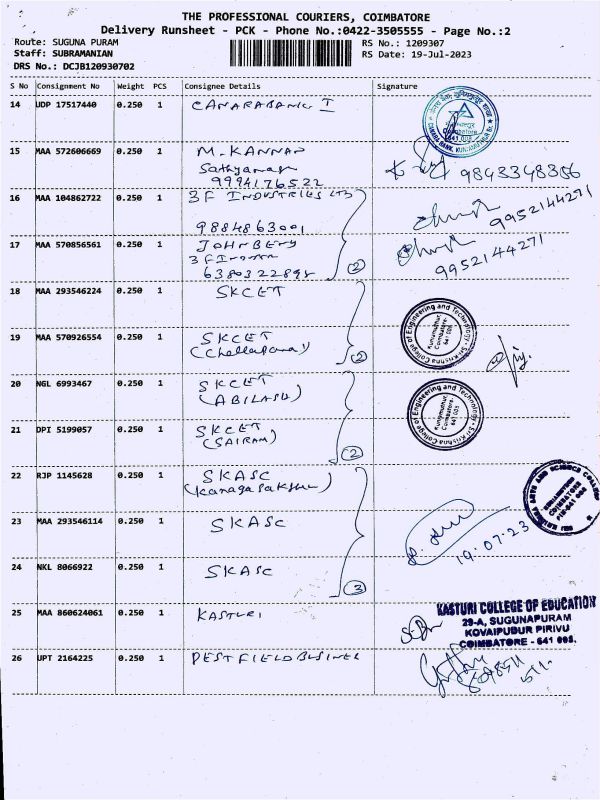 THE PROFESSIONAL COURIERS, COIMBATORE
Delivery Runsheet - PCK - Phone No.:0422-3505555 - Page No.:2
Route: SUGUNA PURAM
RS No.: 1209307
Staff: SUBRAMANIAN
RS Date: 19-Jul-2023
DRS No.: DCJB120930702
S No Consignment No Weight PCS Consignee Details Signature
14 UDP 17517440 0.250 1 CANARABANK I
15 MAA 572606669 0.250 1 M.KANNAN
Sathyanagar
9994176522
9843348366
16 MAA 104862722 0.250 1 3F INDUSTRIES LTD
9884863001
9952144271
17 MAA 570856561 0.250 1 JOHNBENY
3F
6380322898
(2)
9952144271
18 MAA 293546224 0.250 1 SKCET
Sri Krishna College of Engineering and Technology
Kuniamuthur, Coimbatore- 641 008
19 MAA 570926554 0.250 1 SKCET
(2)
20 NGL 6993467 0.250 1 SKCET
(ABILASH)
Sri Krishna College of Engineering and Technology
Kuniamuthur, Coimbatore- 641 008
21 DPI 5199057 0.250 1 SKCET
(SAIRAM)
(2)
22 RJP 1145628 0.250 1 SKASC
23 MAA 293546114 0.250 1 SKASC
19.07.23
24 NKL 8066922 0.250 1 SKASC
(3)
25 MAA 860624061 0.250 1 KASTURI
KASTURI COLLEGE OF EDUCATION
29-A, SUGUNAPURAM
KOVAIPUDUR PIRIVU
COIMBATORE - 641 008.
26 UPT 2164225 0.250 1